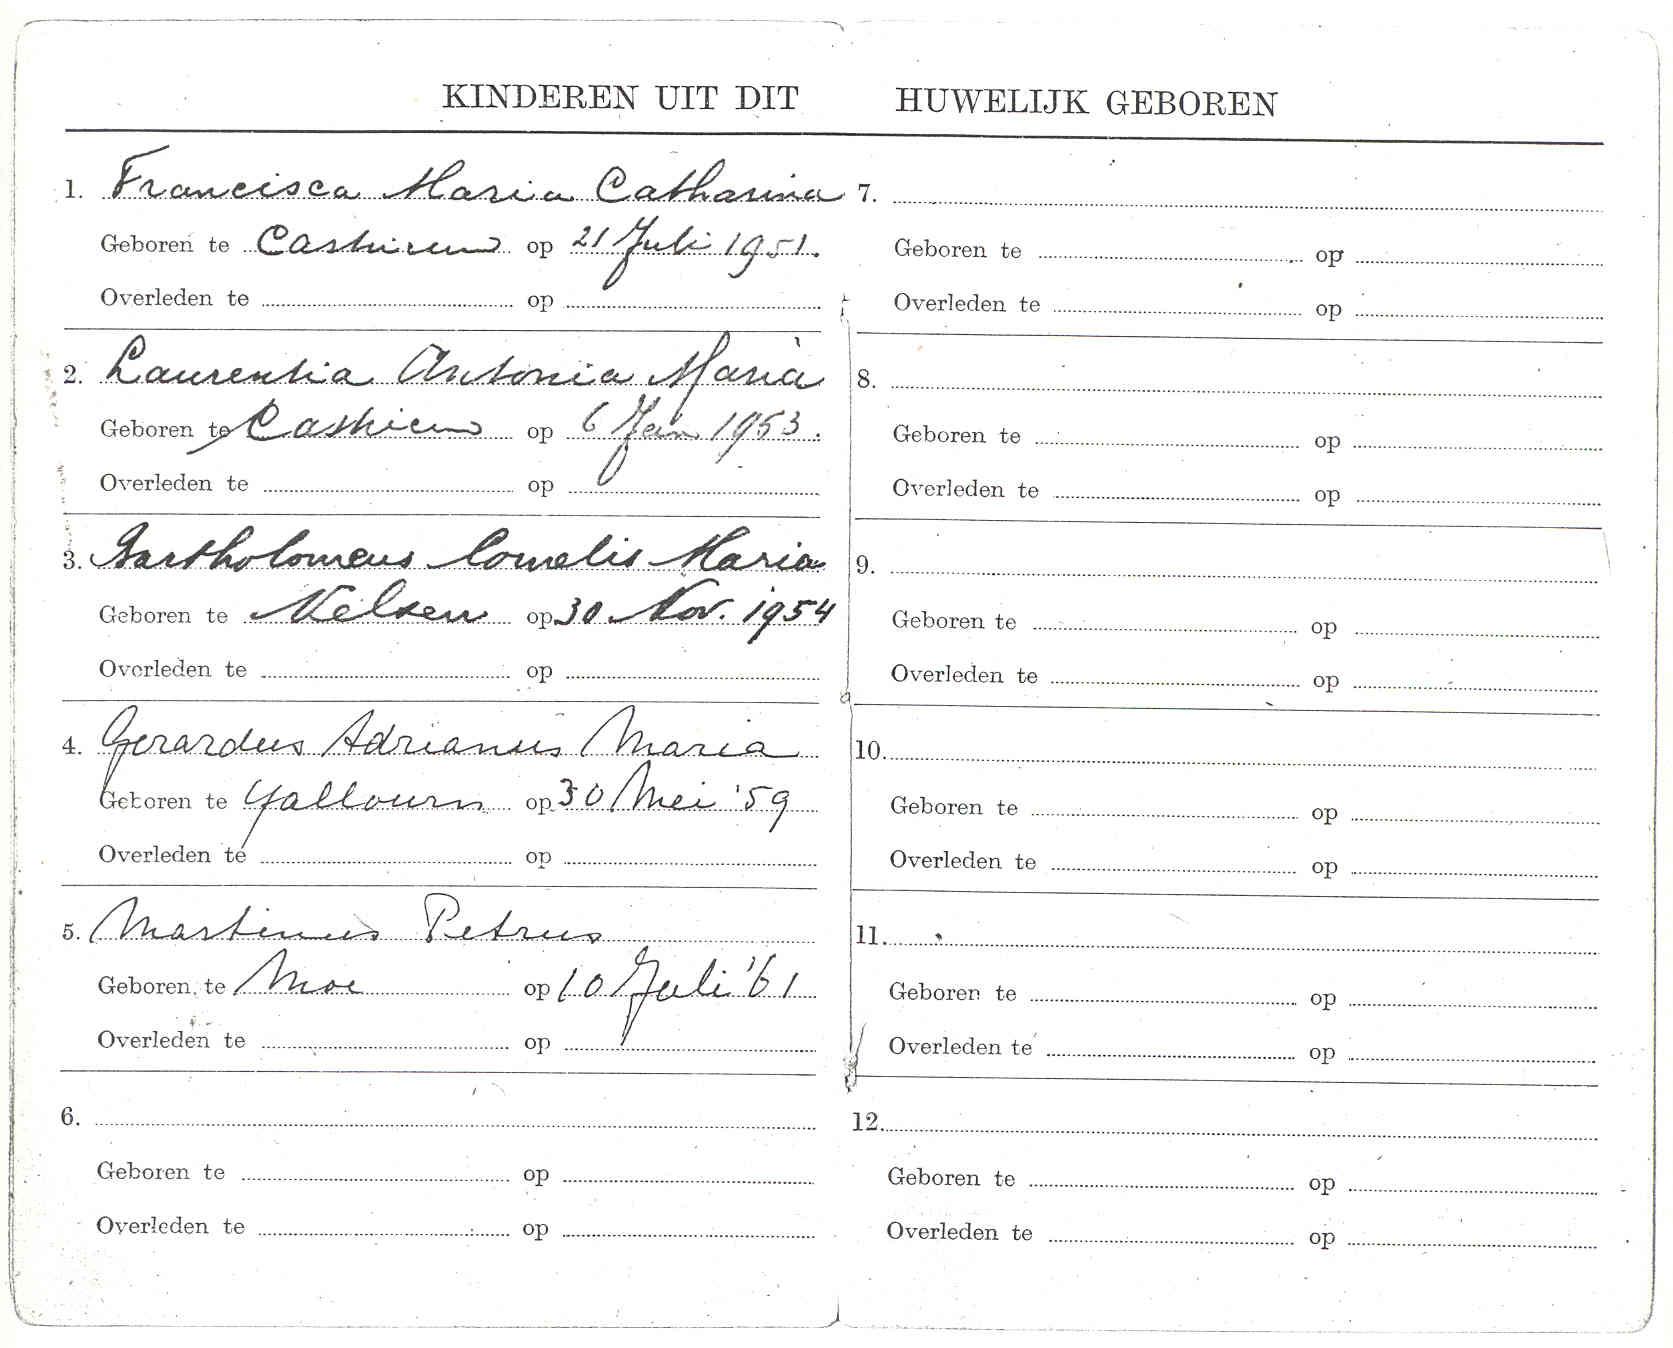 KINDEREN UIT DIT HUWELIJK GEBOREN
1. Francisca Maria Catharina
Geboren te Castricum op 21 Juli 1951.
Overleden te op
2. Laurentia Antonia Maria
Geboren te Castricum op 6 Jan 1953.
Overleden te op
3. Bartholomeus Cornelis Maria
Geboren te Velsen op 30 Nov. 1954
Overleden te op
4. Gerardus Adrianus Maria
Geboren te Yallourn op 30 Mei '59
Overleden te op
5. Martinus Petrus
Geboren te Moe op 10 Juli '61
Overleden te op
6.
Geboren te op
Overleden te op
7.
Geboren te op
Overleden te op
8.
Geboren te op
Overleden te op
9.
Geboren te op
Overleden te op
10.
Geboren te op
Overleden te op
11.
Geboren te op
Overleden te op
12.
Geboren te op
Overleden te op